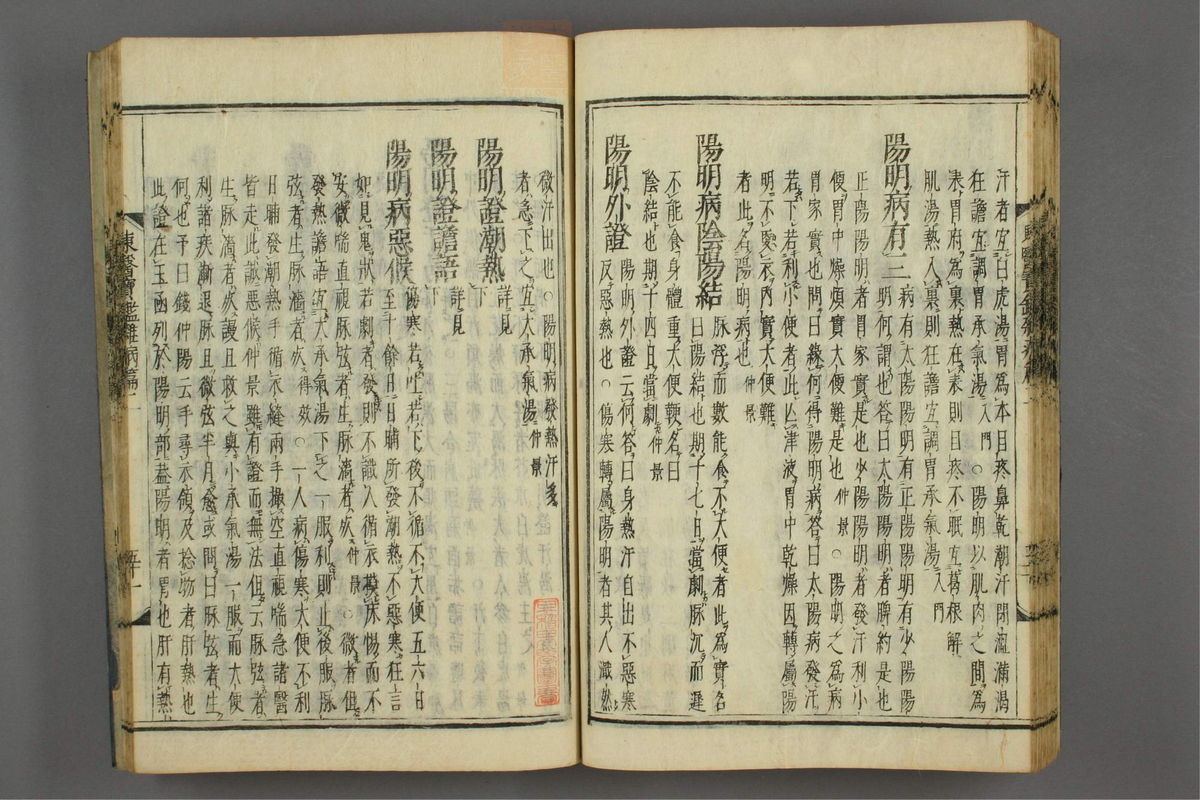 汗者宜白虎湯胃爲本目疼鼻乾潮汗閉澁滿渴
狂譫宜調胃承氣湯入門○陽明以肌肉之間爲
表胃府爲裏熱在表則目疼不眠宜葛根解
肌湯熱入裏則狂譫宜調胃承氣湯入門
陽明病有三 病有太陽陽明有正陽陽明有少陽陽
明何謂也答曰太陽陽明者脾約是也
正陽陽明者胃家實是也少陽陽明者發汗利小
便胃中燥煩實大便難是也仲景○陽明之爲病
胃家實也問曰緣何得陽明病答曰太陽病發汗
若下若利小便者此亡津液胃中乾燥因轉屬陽
明不更衣內實大便難
者此名陽明病也仲景
陽明病陰陽結 脉浮而數能食不大便者此爲實名
曰陽結也期十七日當劇脉沉而遲
不能食身體重大便鞕名曰
陰結也期十四日當劇仲景
陽明外證 陽明外證云何答曰身熱汗自出不惡寒
反惡熱也○傷寒轉屬陽明者其人濈然
微汗出也○陽明病發熱汗多
者急下之宜大承氣湯仲景
陽明證潮熱 詳見下
陽明證譫語 詳見下
陽明病惡候 傷寒若吐若下後不解不大便五六日
至十餘日日晡所發潮熱不惡寒狂言
如見鬼狀若劇者發則不識人循衣摸床惕而不
安微喘直視脉弦者生脉濇者死仲景○微者但
發熱譫語宜大承氣湯下之一服利則止後服脉
弦者生脉濇者死得效○一人病傷寒大便不利
日晡發潮熱手循衣縫兩手撮空直視喘急諸醫
皆走此誠惡候仲景雖有證而無法但云脉弦者
生脉濇者死謾且救之與小承氣湯一服而大便
利諸疾漸退脉且微弦半月愈或問曰脉弦者生
何也予曰錢仲陽云手尋衣領及捻物者肝熱也
此證在玉函列於陽明部盖陽明者胃也肝有熱
東醫寶鑑雜病篇二